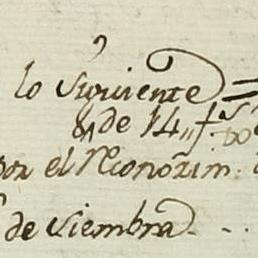 lo siguiente =
de 14 f.s
por el reconosim
de siembra